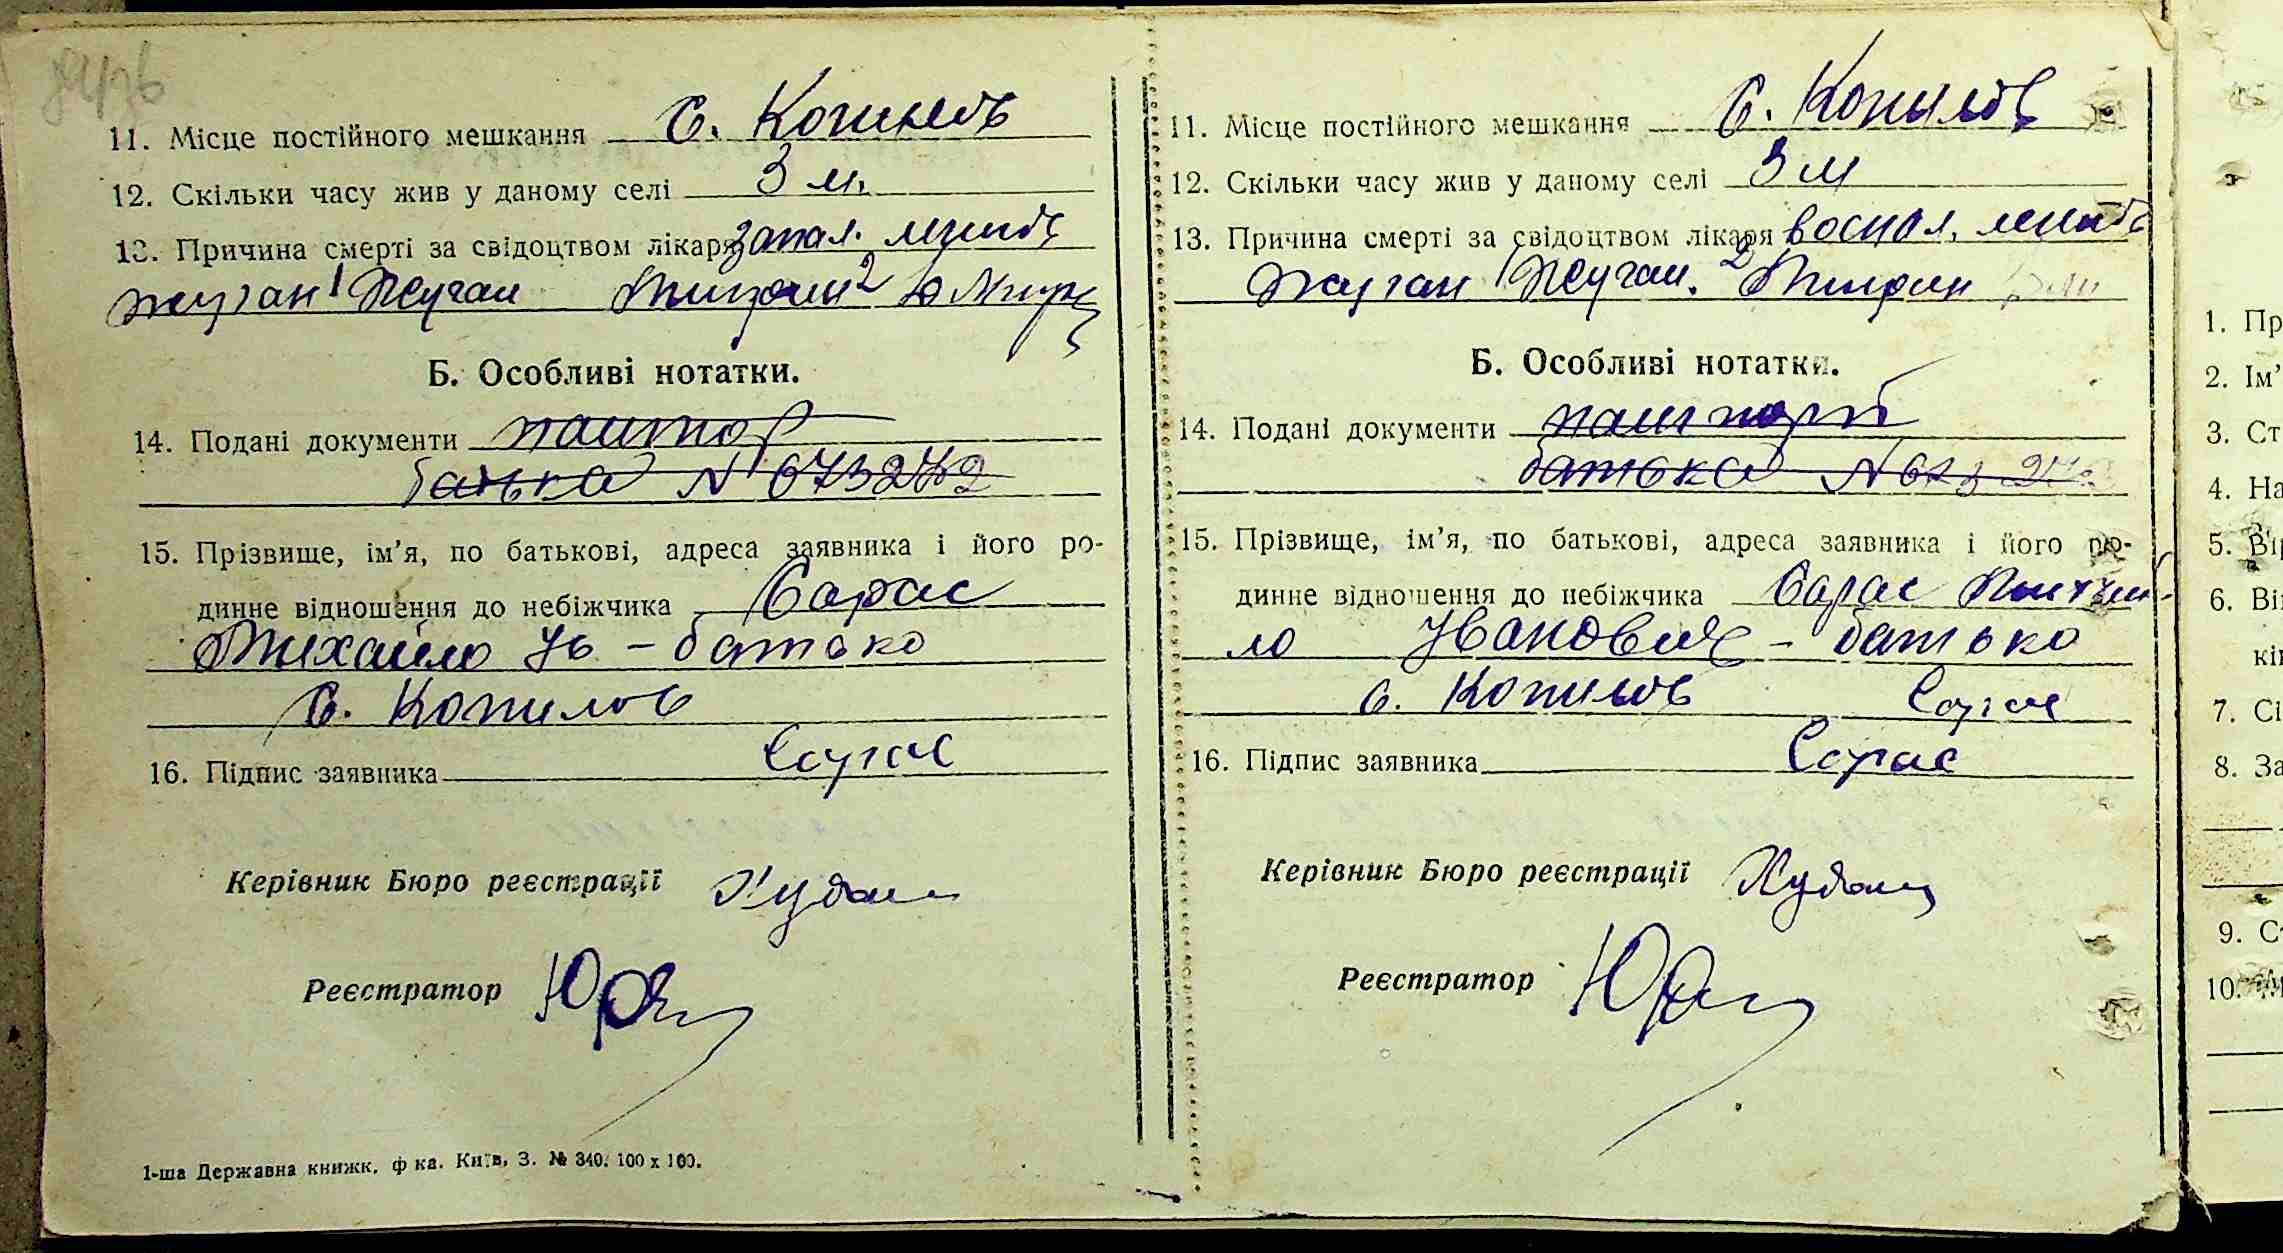 11. Місце постійного мешкання с. Копилов
12. Скільки часу жив у даному селі 3 м.
13. Причина смерті за свідоцтвом лікаря запал.
Б. Особливі нотатки.
14. Подані документи паспор
батька № 673272
15. Прізвище, ім'я, по батькові, адреса заявника і його ро-
динне відношення до небіжчика Сарас
Михайло Ів – батько
с. Копилов
16. Підпис заявника Сарас
Керівник Бюро реєстрації
Реєстратор
1-ша Державна книжк. ф ка. Київ, З. № 340. 100 х 100.
11. Місце постійного мешкання с. Копилов
12. Скільки часу жив у даному селі 3 м
13. Причина смерті за свідоцтвом лікаря воспал.
Б. Особливі нотатки.
14. Подані документи пашпорт
батька №
15. Прізвище, ім'я, по батькові, адреса заявника і його ро-
динне відношення до небіжчика Сарас Михай-
ло Іванович – батько
с. Копилов Сарас
16. Підпис заявника Сарас
Керівник Бюро реєстрації
Реєстратор
1. Пр
2. Ім'
3. Ст
4. На
5. Вір
6. Ві
кі
7. Сі
8. За
9. С
10. М